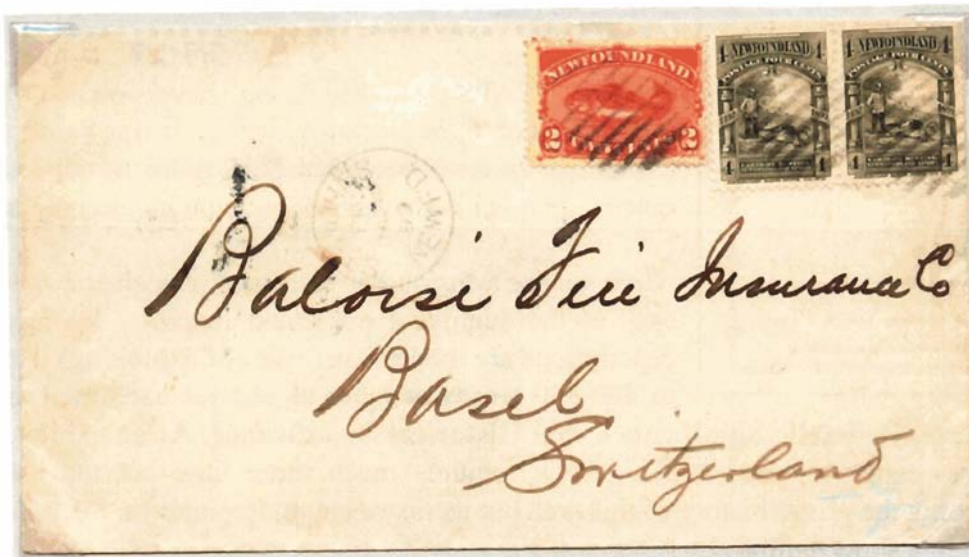 NEWFOUNDLAND
2 2
4 NEWFOUNDLAND 4
POSTAGE FOUR CENTS
4 4
4 NEWFOUNDLAND 4
POSTAGE FOUR CENTS
4 4
Baloise Fire Insurance Co
Basel
Switzerland